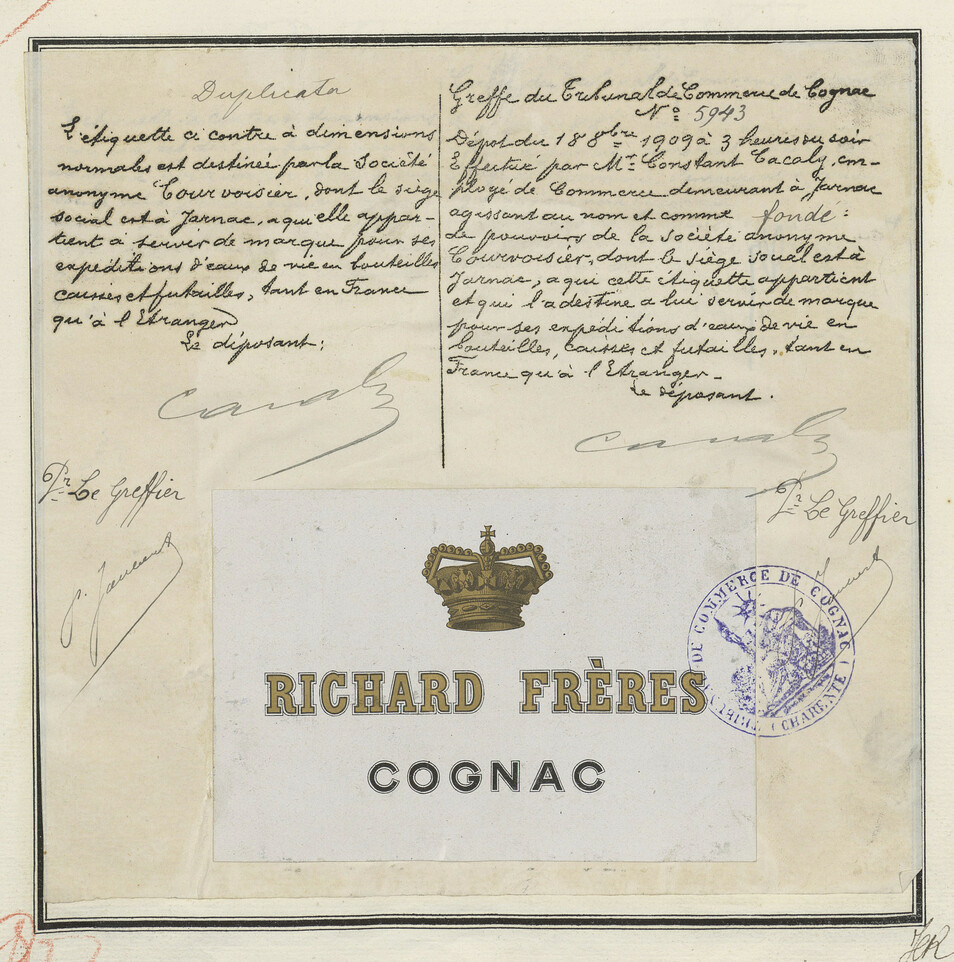 Duplicata
L'étiquette ci contre à dimensions
normales est destinée par la Société
anonyme Courvoisier, dont le siège
social est à Jarnac, a qui elle appar-
tient à servir de marque pour ses
expéditions d'eaux de vie en bouteilles
caisses et futailles, tant en France
qu'à l'Etranger
Le déposant:
Greffe du Tribunal de Commerce de Cognac
N° 5943
Dépôt du 18 8bre 1909 à 3 heures du soir
Effectué par Mr. Constant Cacaly, em-
ployé de Commerce demeurant à Jarnac
agissant au nom et comme fondé:
de pouvoirs de la Société anonyme
Courvoisier, dont le siège soual est à
Jarnac, a qui cette étiquette appartient
et qui l'a destine a lui servir de marque
pour ses expéditions d'eaux de vie en
bouteilles, caisses et futailles, tant en
France qu'à l'Etranger_
Le déposant.
Pr Le Greffier
Pr Le Greffier
RICHARD FRÈRES
COGNAC
DE COMMERCE DE COGNAC
(CHARENTE)